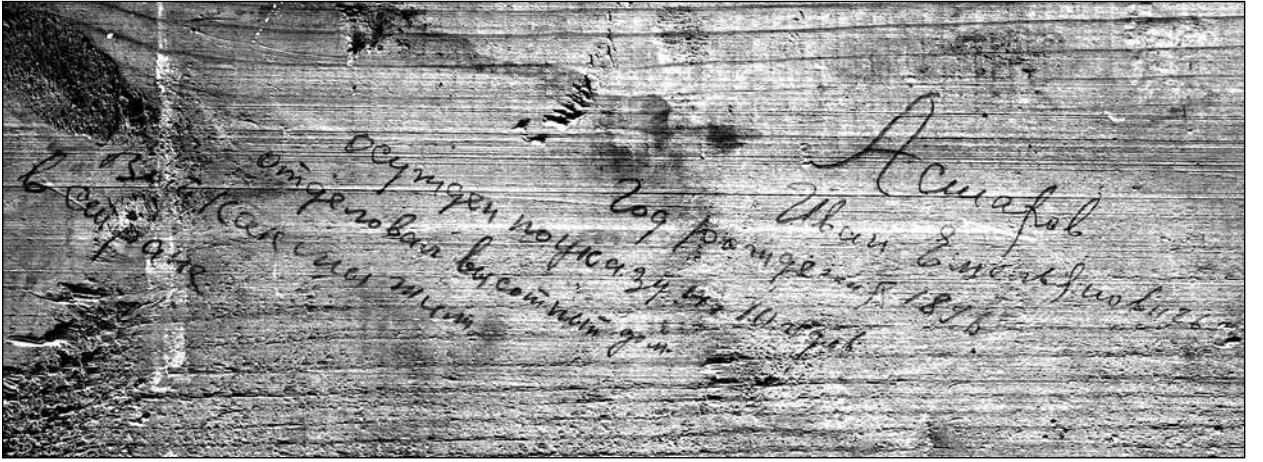 Астафов
Иван Емельянович
Год рождения 1898
осужден по указу на 10 годов
отделовал высотный дом.
Вот как мы жит.
в стране